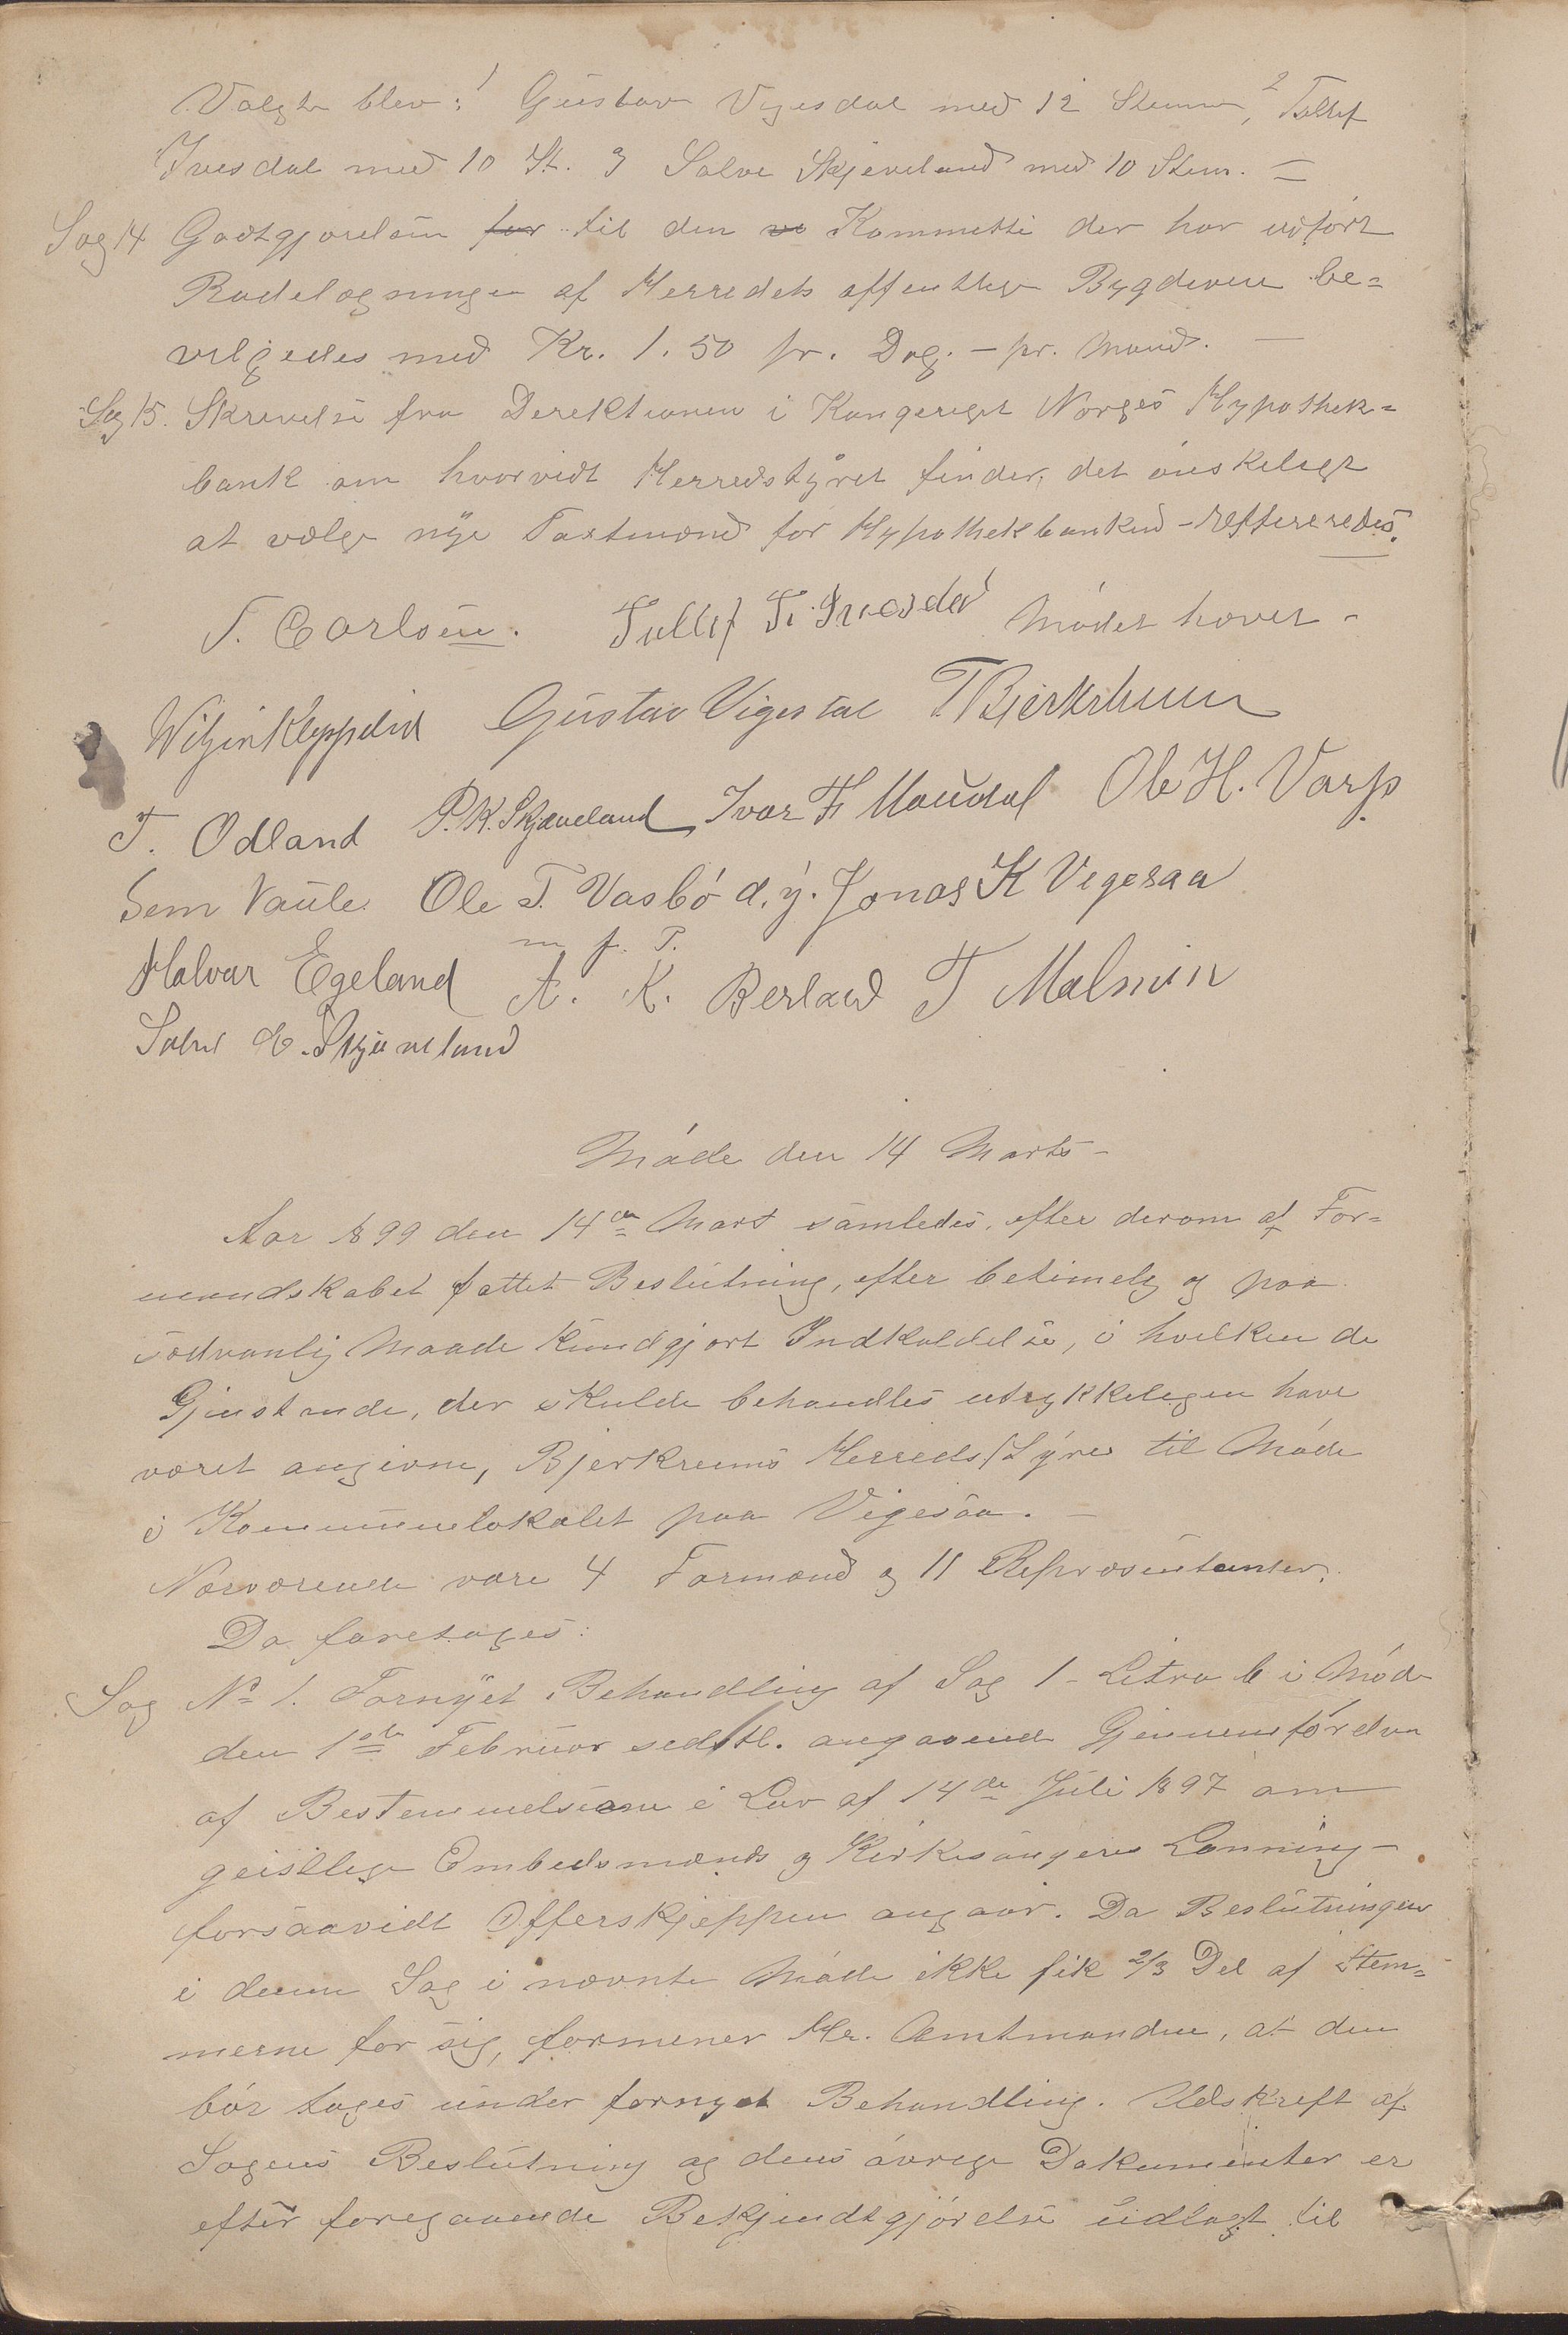 Valgte blev: 1 Gustav Vigesdal med 12 Stemmer, 2 Tollef
Ivesdal med 10 St. 3 Salve Skjeveland med 10 Stem. =
Sag 14 Godtgjørelsen for til den Kommette der har udført
Rodelægningen af Herredets offentlige Bygdeveie be=
vilgedes med Kr. 1.50 pr. Dag. - pr. Mand. -
Sag 15. Skrivelse fra Derektionen i Kongeriget Norges Hypothek=
bank om hvorvidt Herredstyret finder det ønskeligt
at vælge nye Taxtmænd for Hypothekbanken - Reffereredes.
T. Carlsen. Tollef T. Ivesdal Mødet hævet -
Gustav Vigesdal T Bjerkrheim
T. Odland P. K. Skjæveland Ivar F Maudal Ole H. Vasbø
Sem Vaule Ole T. Vasbó d. y. Jonas K Vegesaa
m f. P.
Halvar Egeland A. K. Berland T Malmin
Salve E. Skjæveland
Møde den 14 Marts -
Aar 1899 den 14de Mart samledes, efter derom af For=
mandskabet fattet Beslutning, efter betimelig og paa
sædvanlig Maade kundgjort Indkaldelse, i hvilken de
Gjenstande, der skulde behandles udtrykkeligen have
været angivne, Bjerkreims Herredsstyre til Møde
i Kommunelokalet paa Vigesaa. -
Nærværende vare 4 Formænd og 11 Repræsentanter.
Da foretoges:
Sag No 1. Fornyet Behandling af Sag 1 - Litra b i Møde
den 1ste Februar sedstl. angaaende Gjennemførelsen
af Bestemmelserne i Lov af 14de Juli 1897 om
geistlige Embedsmænds og Kirkesangeres Lønning -
forsaavidt Offerskjeppen angaar. Da Beslutningen
i denne Sag i nævnte Møde ikke fik 2/3 Del af Stem=
merne for sig, formener Hr. Amtmanden, at den
bør tages under fornyet Behandling. Udskreft af
Sagens Beslutning og dens øvrige Dokumenter er
efter foregaaende Bekjendtgjørelse udlagt til